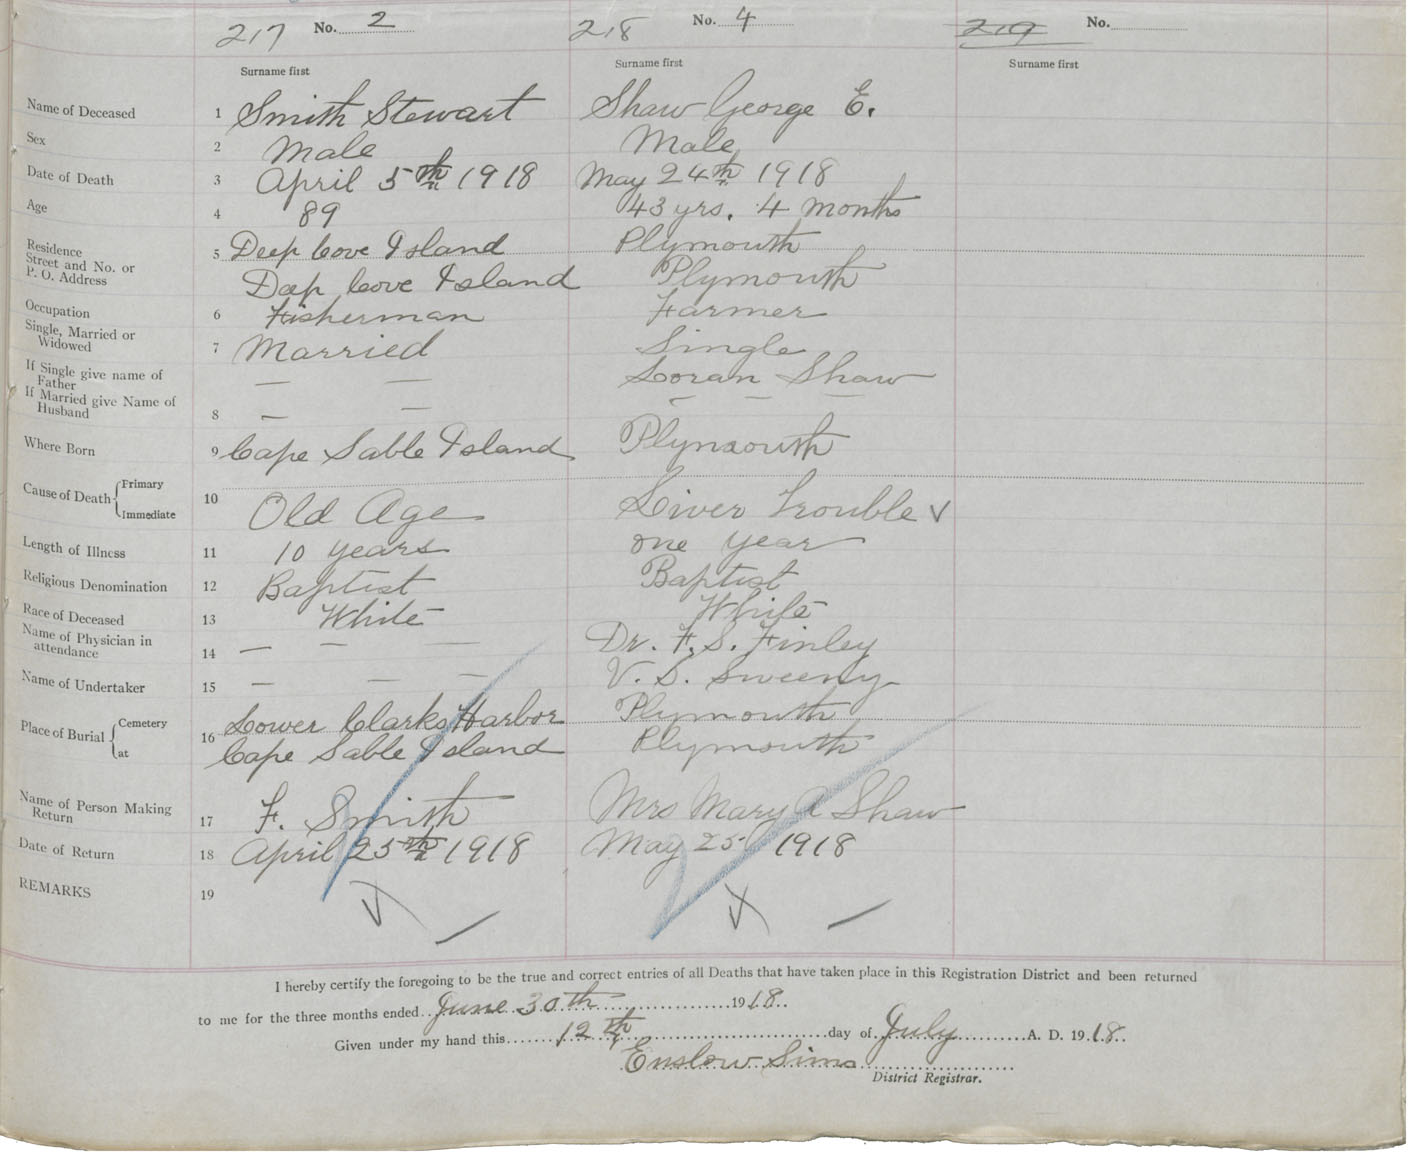 217 No. 2 218 No. 4 219 No.
Surname first Surname first Surname first
Name of Deceased 1 Smith Stewart Shaw George E.
Sex 2 Male Male
Date of Death 3 April 5th 1918 May 24th 1918
Age 4 89 43 yrs. 4 months
Residence 5 Deep Cove Island Plymouth
Street and No. or
P. O. Address Deep Cove Island Plymouth
Occupation 6 Fisherman Farmer
Single, Married or
Widowed 7 Married Single
If Single give name of
Father — — Loran Shaw
If Married give Name of
Husband 8 — — — — —
Where Born 9 Cape Sable Island Plymouth
Cause of Death { Primary
Immediate 10 Old Age Liver Trouble ✓
Length of Illness 11 10 years one year
Religious Denomination 12 Baptist Baptist
Race of Deceased 13 White White
Name of Physician in
attendance 14 — — — Dr. F. S. Finley
Name of Undertaker 15 — — — V. S. Sweeny
Place of Burial { Cemetery 16 Lower Clarks Harbor Plymouth
at Cape Sable Island Plymouth
Name of Person Making
Return 17 F. Smith Mrs Mary A Shaw
Date of Return 18 April 25th 1918 May 25 1918
REMARKS 19
I hereby certify the foregoing to be the true and correct entries of all Deaths that have taken place in this Registration District and been returned
to me for the three months ended June 30th 1918.
Given under my hand this 12th day of July A. D. 1918.
Enslow Sims
District Registrar.